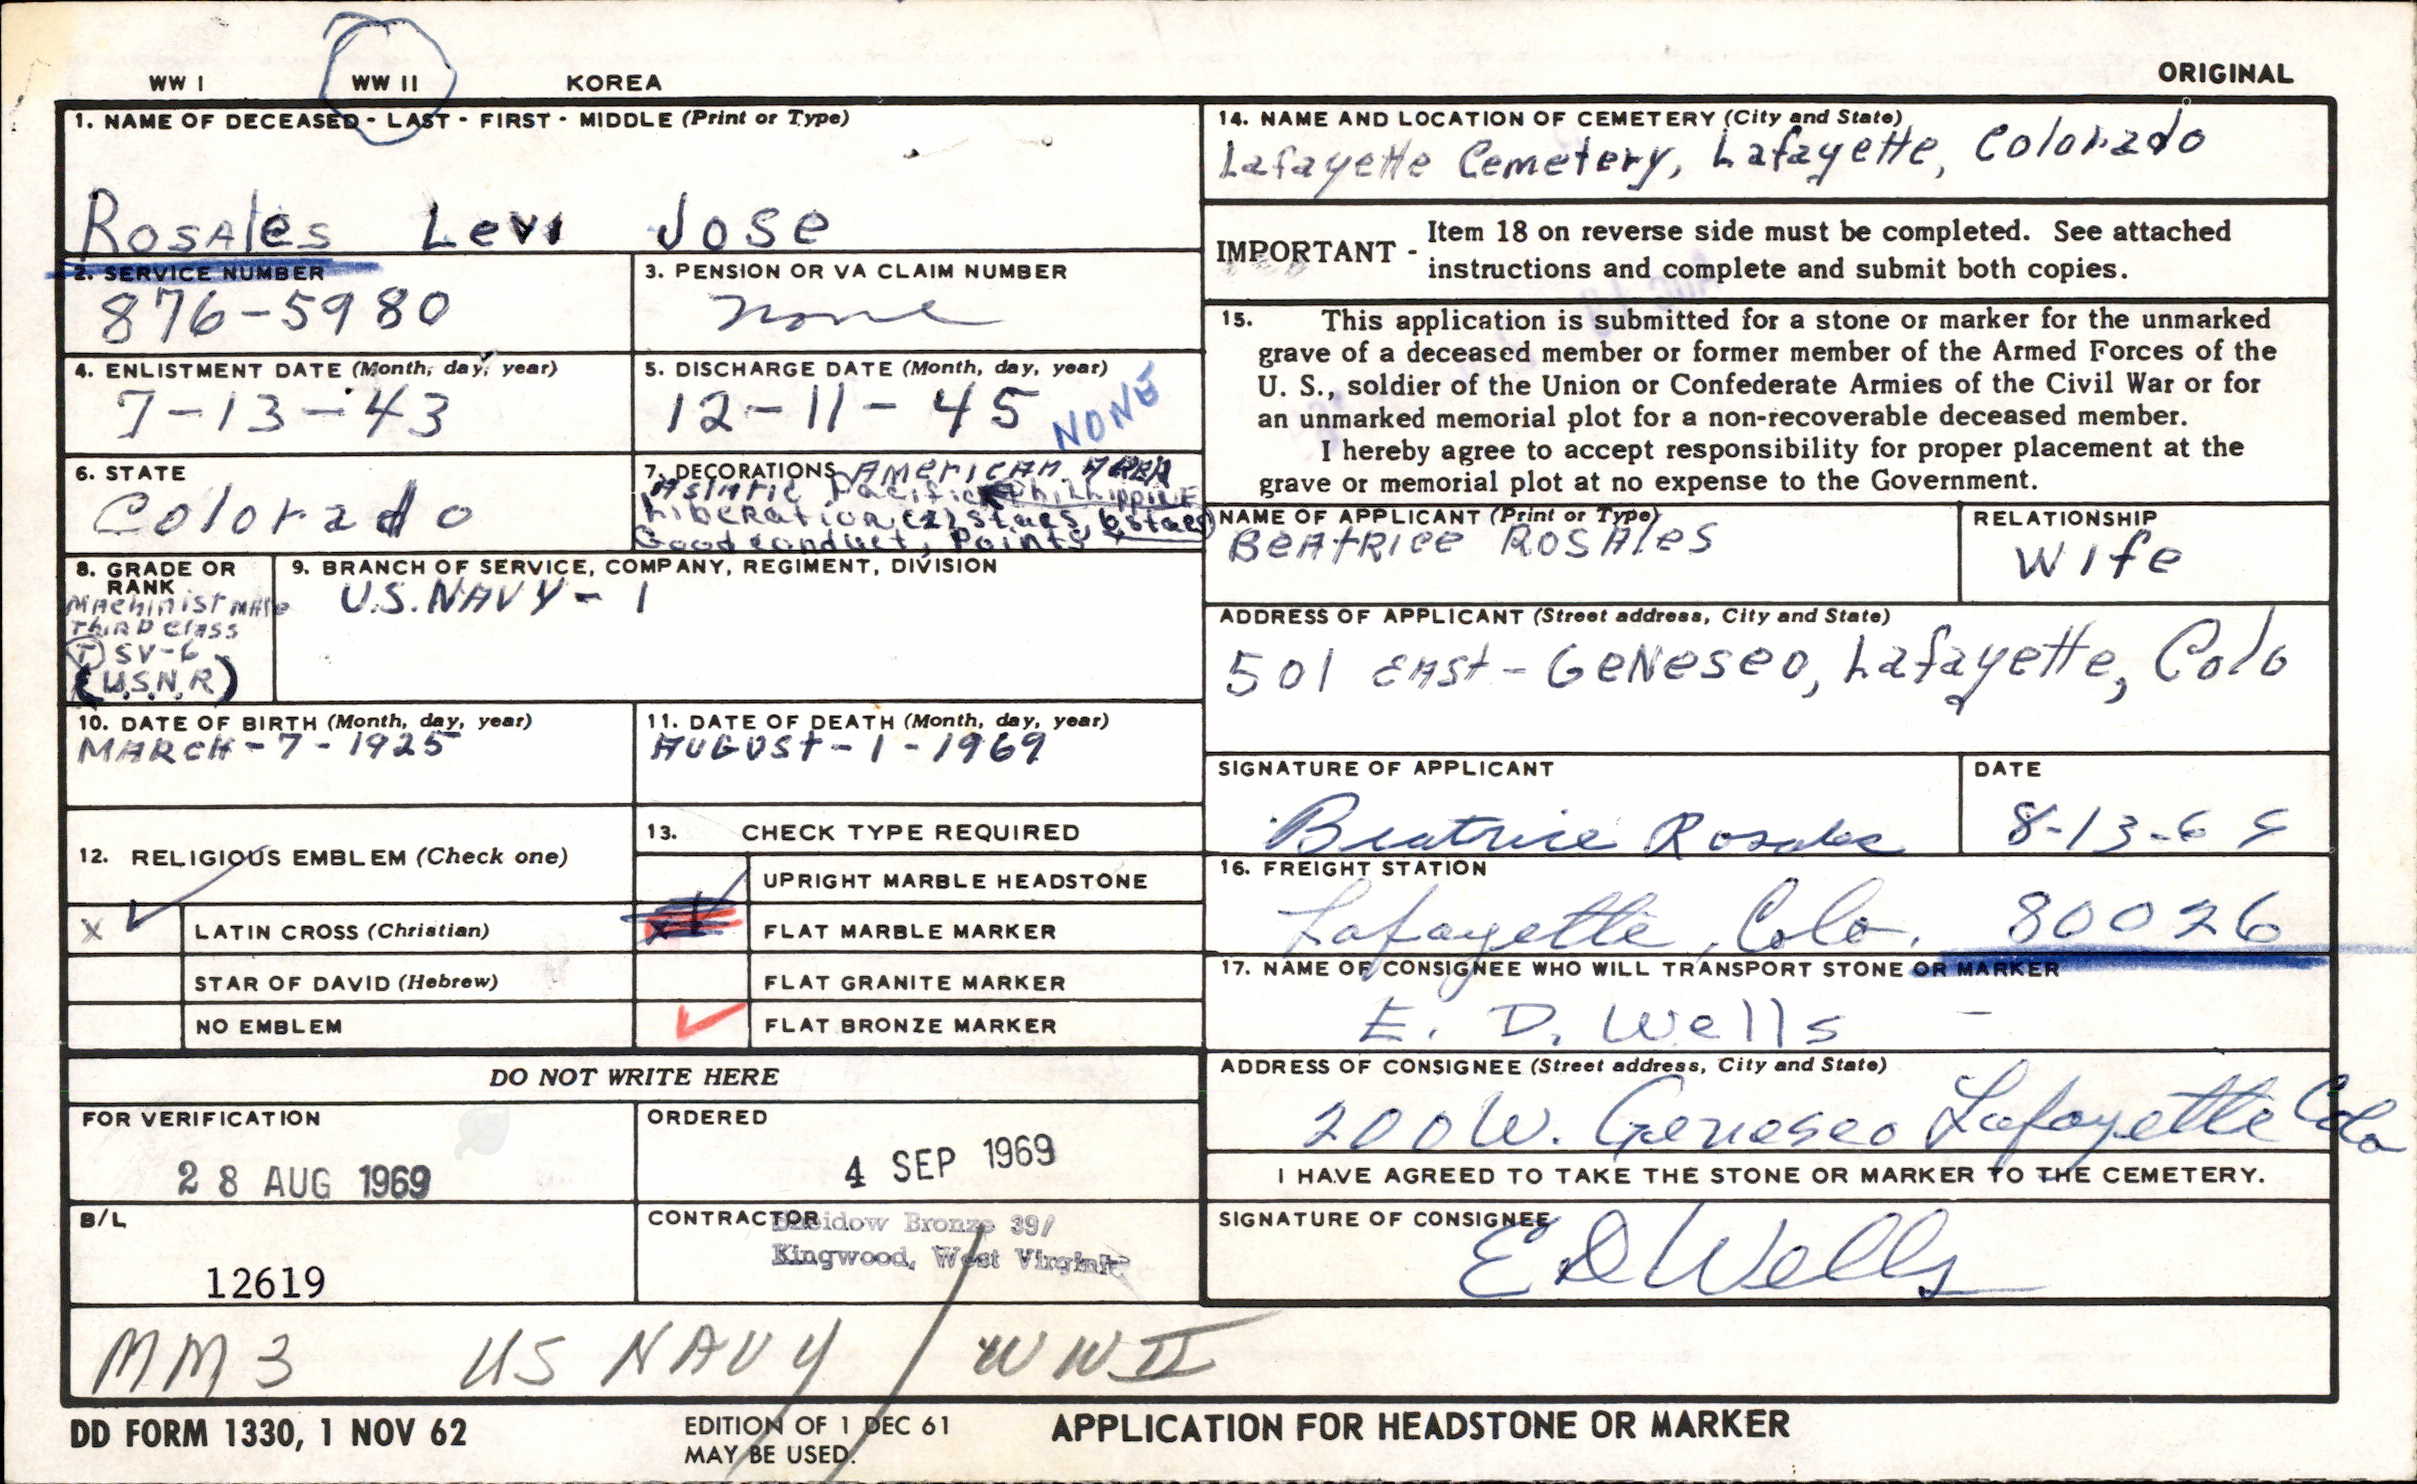 WW I WW II KOREA ORIGINAL
1. NAME OF DECEASED - LAST - FIRST - MIDDLE (Print or Type)
Rosales Levi Jose
2. SERVICE NUMBER
876-5980
3. PENSION OR VA CLAIM NUMBER
none
4. ENLISTMENT DATE (Month, day, year)
7-13-43
5. DISCHARGE DATE (Month, day, year)
12-11-45
NONE
6. STATE
Colorado
7. DECORATIONS American AREA
Asiatic Pacific Phillippine
Liberation (2) stars, 6 stars
Good conduct, Points
8. GRADE OR
RANK
Machinist Mate
Third Class
(T) SV-6
(U.S.N.R)
9. BRANCH OF SERVICE, COMPANY, REGIMENT, DIVISION
U.S. NAVY - 1
10. DATE OF BIRTH (Month, day, year)
MARCH-7-1925
11. DATE OF DEATH (Month, day, year)
AUGUST-1-1969
12. RELIGIOUS EMBLEM (Check one)
X LATIN CROSS (Christian)
STAR OF DAVID (Hebrew)
NO EMBLEM
13. CHECK TYPE REQUIRED
UPRIGHT MARBLE HEADSTONE
FLAT MARBLE MARKER
FLAT GRANITE MARKER
FLAT BRONZE MARKER
DO NOT WRITE HERE
FOR VERIFICATION
28 AUG 1969
ORDERED
4 SEP 1969
B/L
12619
CONTRACTOR
Bronze 39/
Kingwood, West Virginia
MM3 US NAVY / WW II
14. NAME AND LOCATION OF CEMETERY (City and State)
Lafayette Cemetery, Lafayette, Colorado
IMPORTANT - Item 18 on reverse side must be completed. See attached
instructions and complete and submit both copies.
15. This application is submitted for a stone or marker for the unmarked
grave of a deceased member or former member of the Armed Forces of the
U. S., soldier of the Union or Confederate Armies of the Civil War or for
an unmarked memorial plot for a non-recoverable deceased member.
I hereby agree to accept responsibility for proper placement at the
grave or memorial plot at no expense to the Government.
NAME OF APPLICANT (Print or Type)
BeAtRice ROSAles
RELATIONSHIP
Wife
ADDRESS OF APPLICANT (Street address, City and State)
501 EAst - GeNeseo, Lafayette, Colo
SIGNATURE OF APPLICANT
Beatrice Rosales
DATE
8-13-69
16. FREIGHT STATION
Lafayette, Colo. 80026
17. NAME OF CONSIGNEE WHO WILL TRANSPORT STONE OR MARKER
E. D. Wells
ADDRESS OF CONSIGNEE (Street address, City and State)
200 W. Geneseo Lafayette Colo
I HAVE AGREED TO TAKE THE STONE OR MARKER TO THE CEMETERY.
SIGNATURE OF CONSIGNEE
E D Wells
DD FORM 1330, 1 NOV 62
EDITION OF 1 DEC 61
MAY BE USED.
APPLICATION FOR HEADSTONE OR MARKER